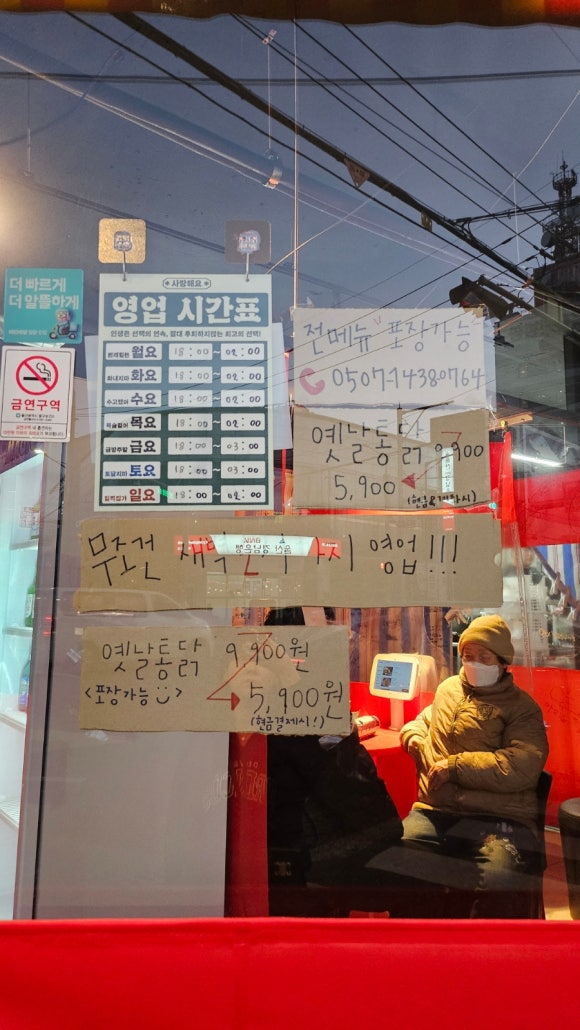 더 빠르게
더 알뜰하게
금연구역
사랑해요
영업 시간표
인생은 선택의 연속, 절대 후회하지않는 최고의 선택!
월요 18:00~02:00
화요 18:00~02:00
수고했어 수요 18:00~02:00
목요 18:00~02:00
금요 18:00~03:00
토요 18:00~03:00
일요 18:00~02:00
전메뉴 포장가능
0507-14380764
옛날통닭 9,900
5,900
(현금결제시)
무조건 새벽 시 영업!!!
옛날통닭 9,900원
<포장가능> 5,900원
(현금결제시!)